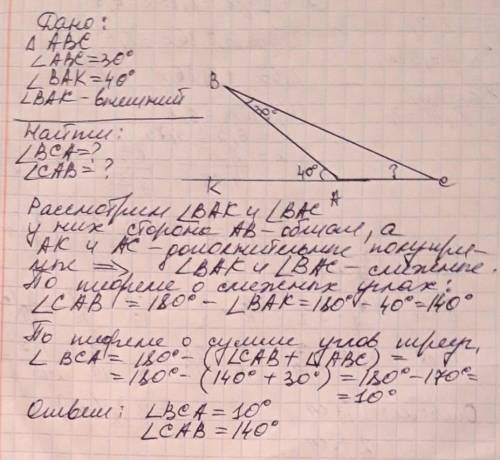 Дано:
△ ABC
∠ABC=30°
∠BAK=40°
∠BAK - внешний
Найти:
∠BCA=?
∠CAB=?
B
30°
40°
?
K
A
C
Рассмотрим ∠BAK и ∠BAC
у них сторона AB - общая, а
AK и AC - дополнительные полупря-
мые => ∠BAK и ∠BAC - смежные.
По теореме о смежных углах:
∠CAB = 180° - ∠BAK = 180° - 40° = 140°
По теореме о сумме углов треуг.
∠ BCA = 180° - (∠CAB + ∠ABC) =
= 180° - (140° + 30°) = 180° - 170° =
= 10°
Ответ: ∠BCA = 10°
∠CAB = 140°